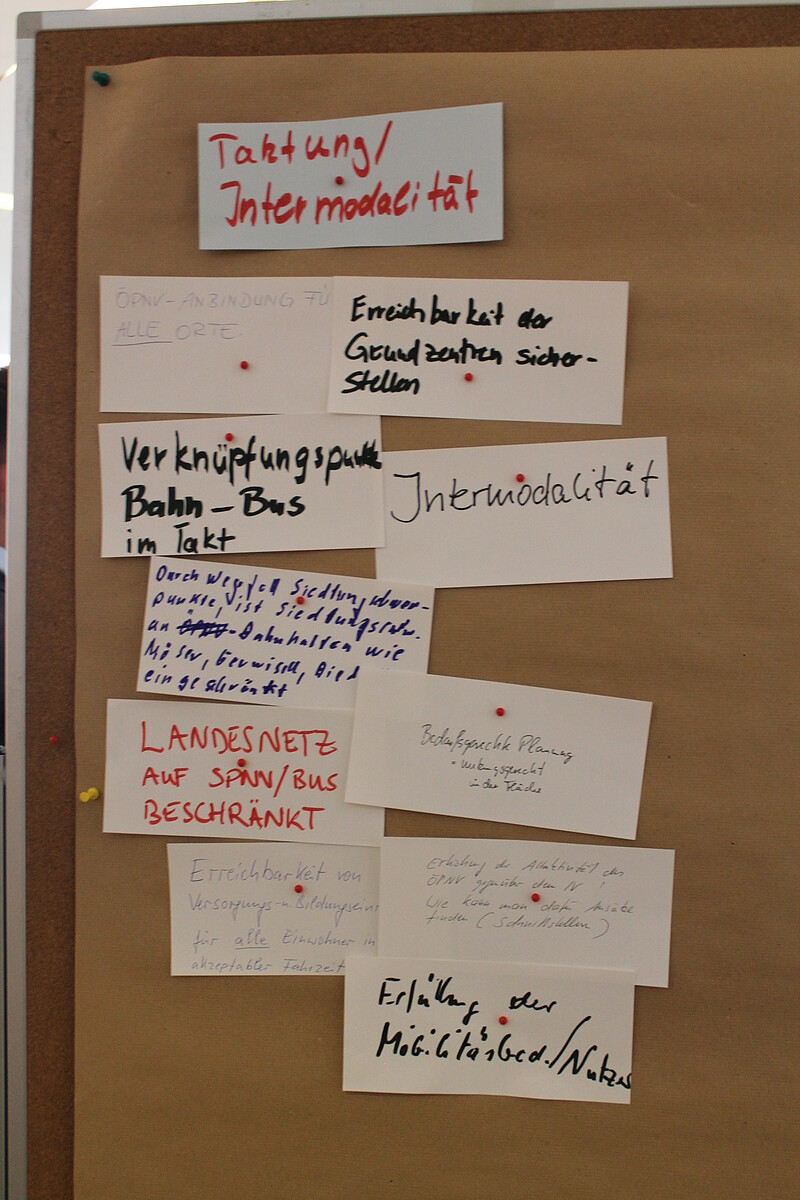 Taktung/
Intermodalität
ÖPNV-ANBINDUNG FÜ
ALLE ORTE
Erreichbarkeit der
Grundzentren sicher-
stellen
Verknüpfungspunkte
Bahn-Bus
im Takt
Intermodalität
Durch Wegfall Siedlungsschwer-
punkte, ist Siedlungsentw.
an ÖPNV-Bahnhalten wie
Möser, Gerwisch, Bied
eingeschränkt
LANDESNETZ
AUF SPNN/BUS
BESCHRÄNKT
Bedarfsgerechte Planung
- nutzungsgerecht
in der Fläche
Erreichbarkeit von
Versorgungs-u. Bildungseinr
für alle Einwohner in
akzeptabler Fahrzeit
Erhöhung der Attraktivität des
ÖPNV gegenüber dem IV !
Wie kann man dafür Ansätze
finden (Schnittstellen)
Erfüllung der
Mobilitätsbed./Nutzer